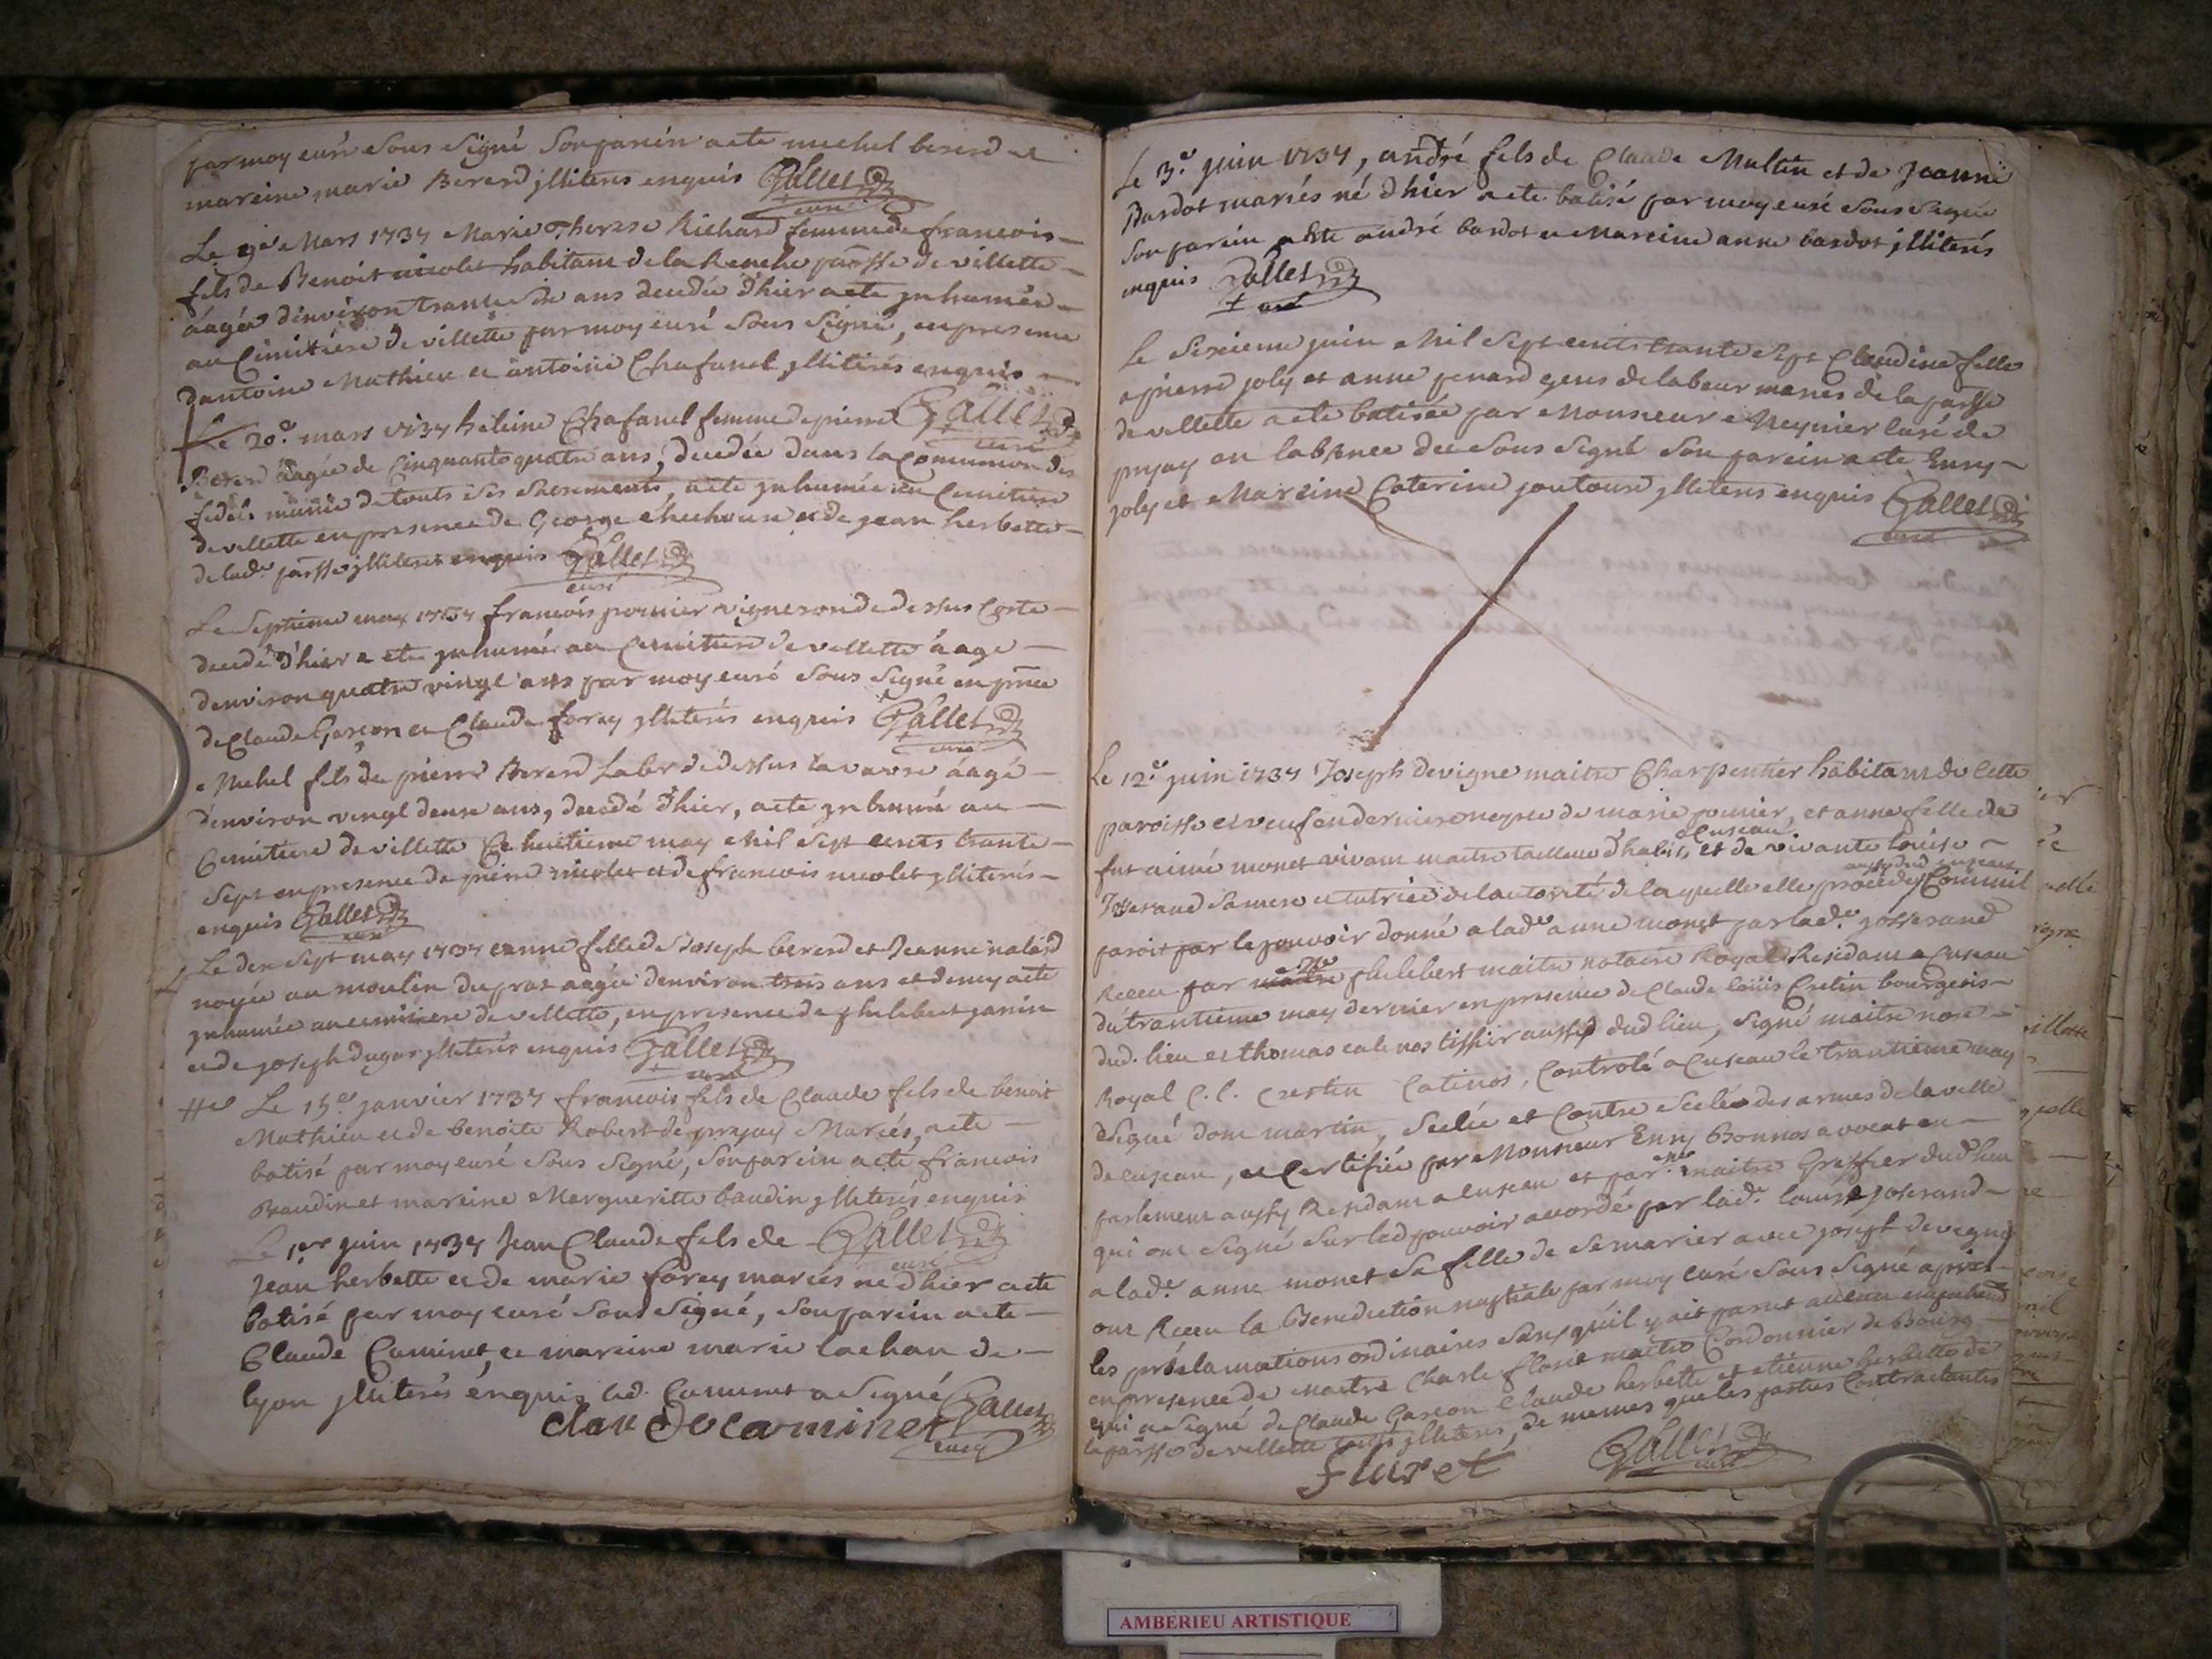 par moy curé sous signé son parein a eté michel bererd et
mareine marie Bererd jlliterés enquis Gallet
curé
Le 9e Mars 1737 Marie Therese Richard femme de francois
fils de Benoit nicolet habitant de la Renche pansse de villette
aagée d'environ trante ans decedée d'hier a eté inhumée
au Cimitiere de villette par moy curé sous signé, en presence
d'antoine Mathieu et antoine Chafanel jlliterés enquis
Gallet curé
Le 20e mars 1737 heleine Chafanel femme de pierre
Bererd aagée de Cinquante quatre ans, decedée dans la Communion des
fidels munie de touts ses sacrements, a eté inhumée au Cemitiere
de villette en presence de George et de jean herbette
de lade parsse jlliterés enquis Gallet
curé
Le septieme may 1737 francois pomier vigneron de dessus Coste
decedé d'hier a eté inhumé au Cemitiere de villette aagé
d'environ quatre vingt ans par moy curé sous signé en pnce
de Claude Garçon et Claude forey jlliterés enquis Gallet
curé
Michel fils de pierre Bererd Labr de dessus aagé
d'environ vingt deux ans, decedé d'hier, a eté inhumé au
Cemitiere de villette Ce huitieme may Mil sept cents trante
sept en presence de pierre nicolet et de francois nicolet jlliterés
enquis Gallet
curé
Le dix sept may 1737 anne fille de Joseph bererd et Jeanne
noyée au moulin du prat aagée d'environ trois ans et demy a eté
inhumée au cemitiere de villette, en presence de philebert janin
et de joseph dugas jlliterés enquis Gallet
curé
Le 15e janvier 1737 francois fils de Claude fils de benoit
Mathieu et de benoite Robert de prijay Mariés, a eté
batisé par moy curé sous signé, son parein a eté francois
Baudin et mareine Margueritte baudin jlliterés enquis
Gallet curé
Le 1er juin 1737 Jean Claude fils de
Jean herbette et de marie forey mariés né d'hier a eté
batisé par moy curé sous signé, son parein a eté
Claude Caminet, et mareine marie lachan de
lyon jlliterés enquis led. Caminet a signé Gallet
claude caminet
curé
Le 3e juin 1737, andré fils de Claude Multin et de Jeanne
Bardot mariés né d'hier a eté batisé par moy curé sous signé
son parein a eté andré bardot et Mareine anne bardot jlliterés
enquis Gallet
curé
Le sixieme juin Mil sept cents trante sept Claudine fille
a pierre joly et anne penard gens de labeur mariés de la parsse
de villette a eté batisée par Monsieur Meynier curé de
prijay en l'absence du sous signé son parein a eté Enry
joly et Mareine Caterine jlliterés enquis Gallet
curé
Le 12e juin 1737 Joseph devigne maitre Charpentier habitant de Cette
paroisse et veuf en derniere nopce de marie pomier, et anne fille de
fut aimé monet vivant maitre tailleur d'habit a Cuseau et de vivante louise
Josserand sa mere et tutrice de l'autorité de laquelle elle procede Comme il
aussy dud cuzeau
paroit par le pouvoir donné a lade anne monet par lade josserand
Receu par me philebert maitre notaire Royal Residant a Cuseau
du trantieme may dernier en presence de Claude louis Cretin bourgeois
dud. lieu et thomas tissier aussy dud lieu, signé maitre nore
Royal C. L. Crestin Catinos, Controlé a Cuseau le trantieme may
signé dom martin, scelée et Contre scelée des armes de la ville
de cuseau, et Certifiée par Monsieur Enry Bonnos avocat en
parlement aussy Residant a Cuseau et par me maitre Greffier dud lieu
qui ont signé sur led pouvoir accordé par lade louise joserand
a lade anne monet sa fille de se marier avec joseph devigne
ont Receu la Benediction nuptiale par moy curé sous signé apres
les proclamations ordinaires sans qu'il y ait parut aucun empechement
en presence de maitre Charle maitre Cordonnier de Bourg
qui a signé de Claude Garcon Claude herbette et etienne herbette de
la parsse de villette touts jlliterés, de memes que les parties Contractantes
furet Gallet
curé
AMBERIEU ARTISTIQUE